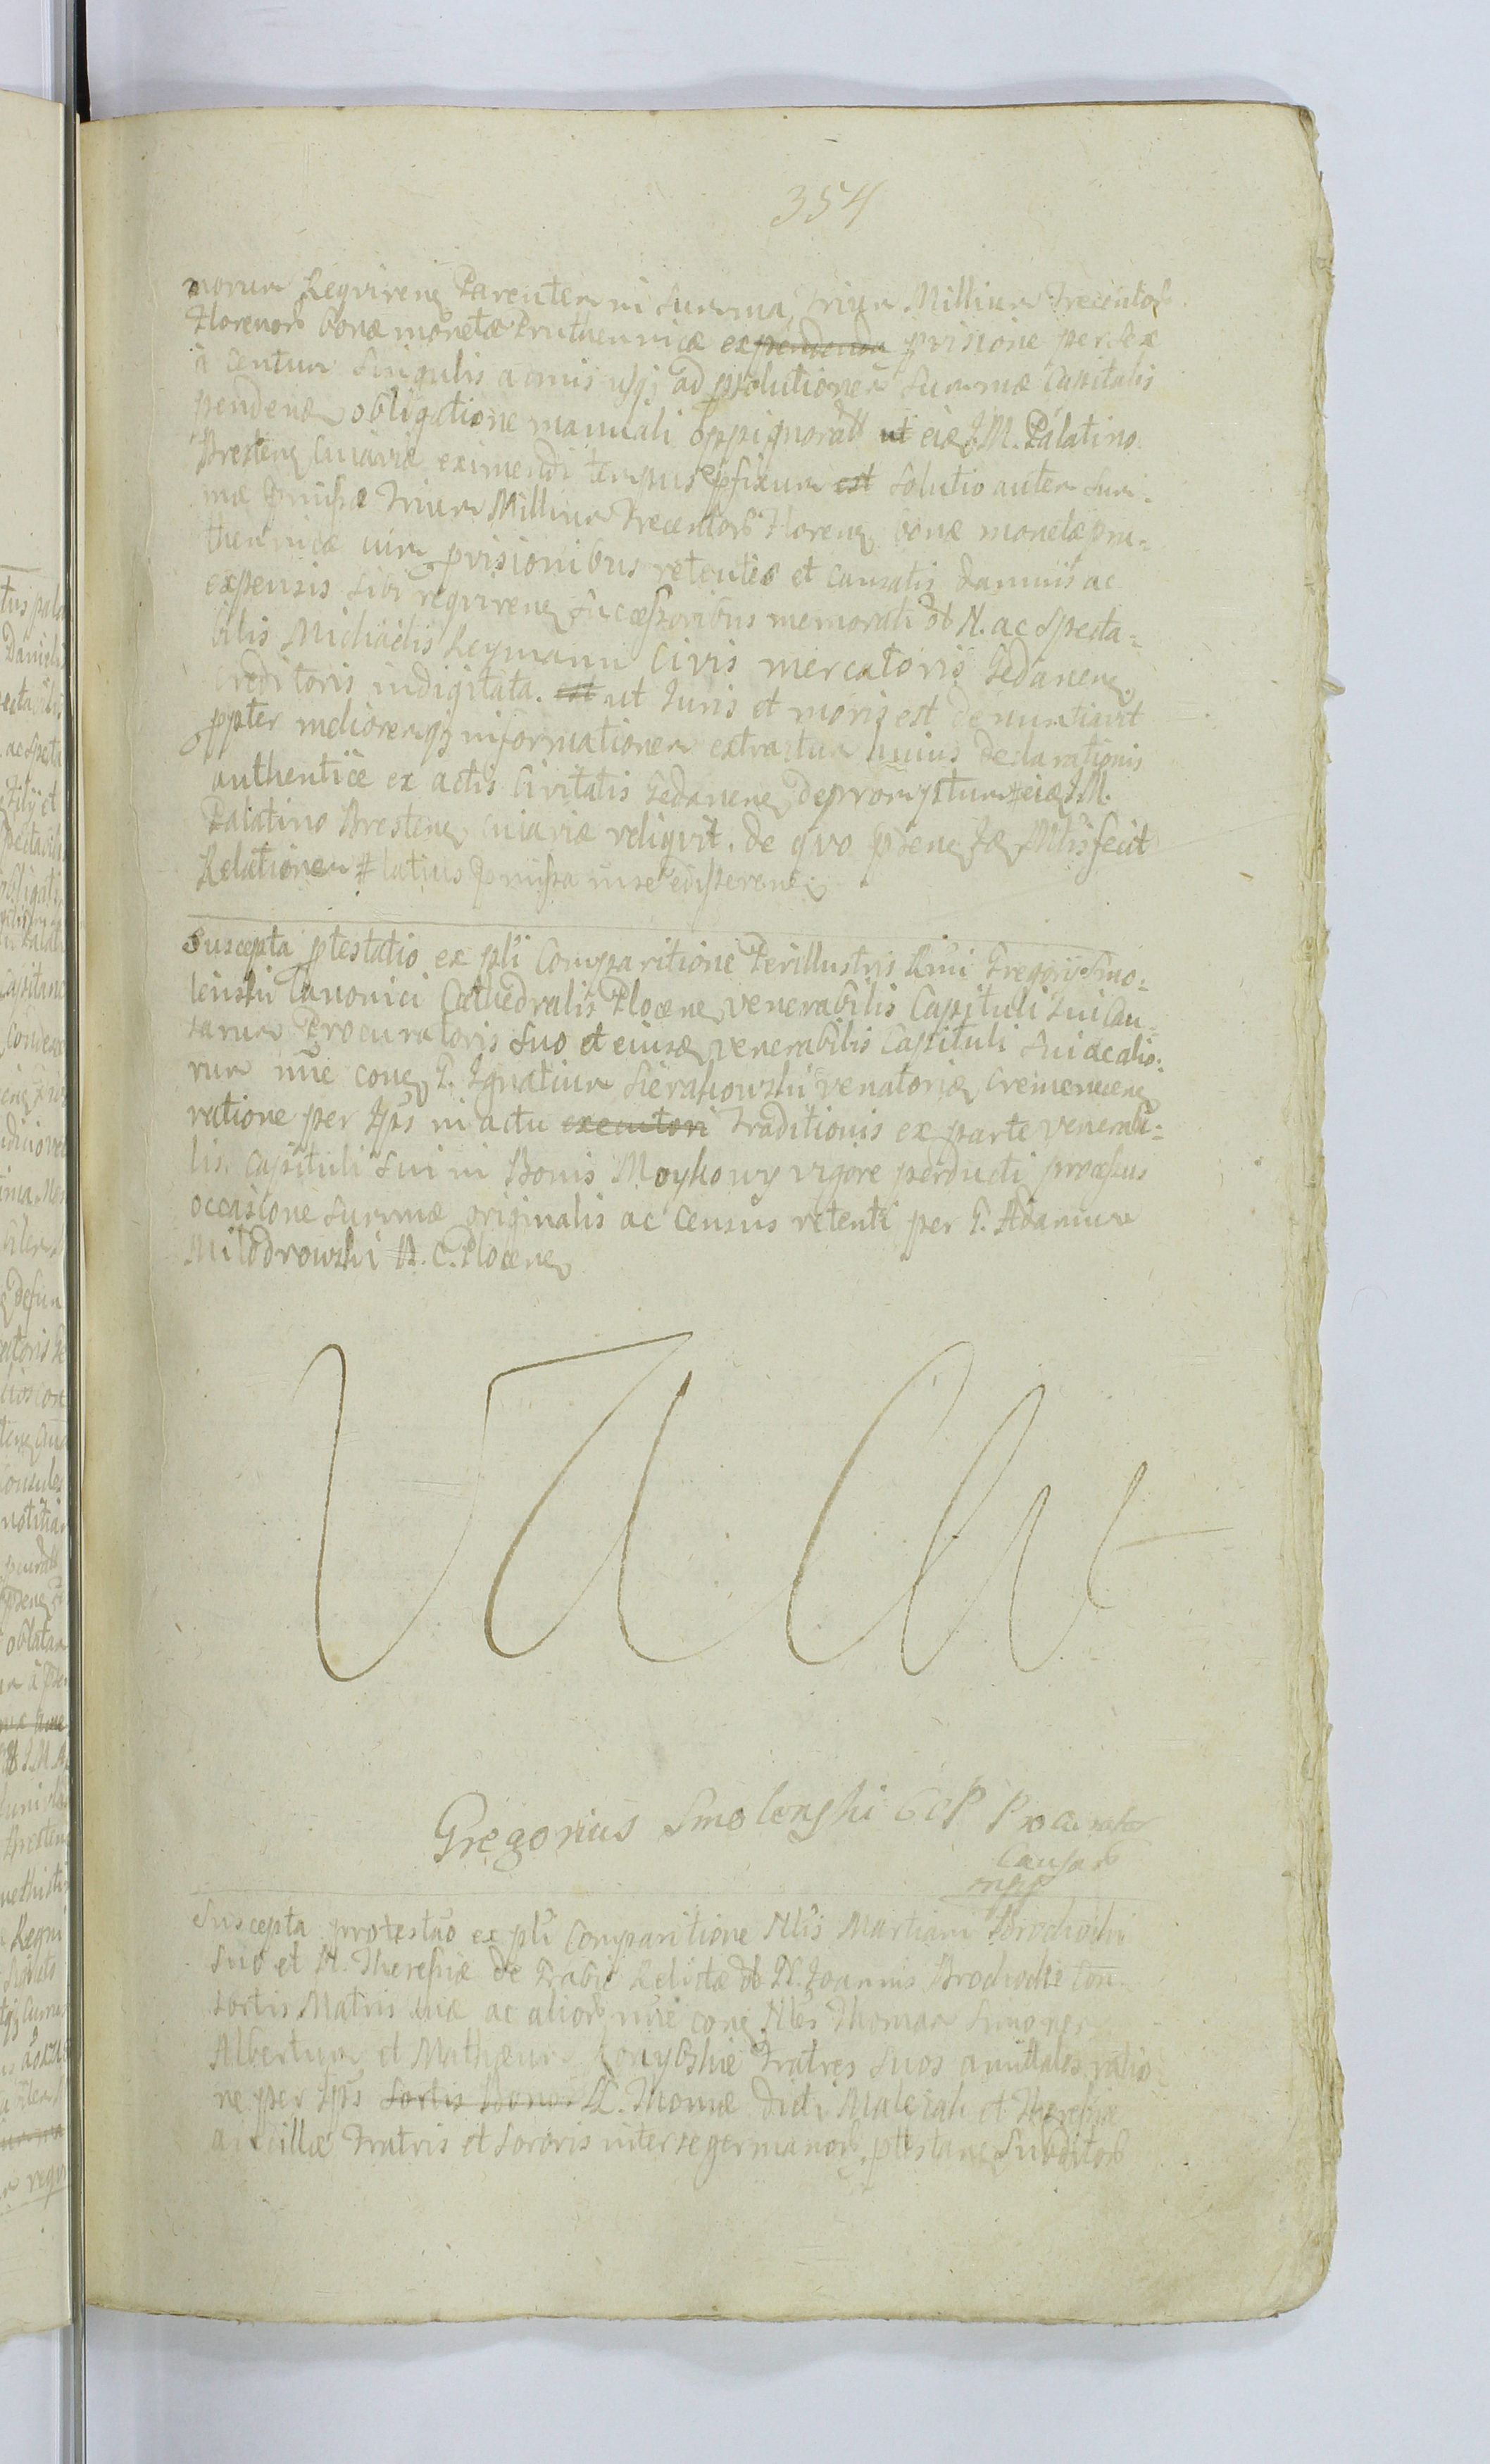 354
norum Reqviren Parentem in Summa Trium Millium Trecentor
Florenor bonæ monetæ Pruthennicæ expendenda pvisione per Sex
à Centum Singulis annis usq ad psolutionem Summæ Capitalis
penden obligatione manuali oppignorat ut eid J.M. Palatino
Bresten Cuiaviæ eximendi tempus pfixum est Solutio autem Sum-
mæ pmissæ Trium Millium Trecentor Floren bonæ monetæ Pru=
thennicæ cum pvisionibus retentis et causatis damnis ac
expensis sibi reqviren Successoribus memorati N. ac Specta=
bilis Michaelis Leymann Civis mercatoris Gedanen
Creditoris indigitata. est ut Juris et moris est denuntiavit
ppter melioremq informationem extractum huius declarationis
authentice ex actis Civitatis Gedanen depromptum eid J.M.
Palatino Bresten Cuiaviæ reliqvit. de qvo psen fecit
Relationem latius pmissa in se disseren
Suscepta ptestatio ex pli Comparitione Perillustris Rmi Gregorii Smo=
lenski Canonici Cathedralis Plocen venerabilis Capituli Sui Cau=
sarum Procuratoris Suo et eiusd venerabilis Capituli Sui ac alio=
rum nne con G. Ignatium Sierakowski venatorid Cremenecen
ratione per Ips in actu executori Traditionis ex parte venerabi=
lis. Capituli Sui in Bonis Moykowy vigore perducti processus
occasione Summæ originalis ac Census retenti per G. Adamum
Milodrowski B. C. Plocen
VACAt
Gregorius Smolenski CCP Procurator
Causar
mpp
Suscepta protestao ex pli Comparitione Nlis Martiani Brochocki
Suo et N. Theresiæ de Grabie Relictæ N. Joannis Brochocki Con
sortis Matris suæ ac alior nne con Nles Thomam Simonem
Albertum et Mathæum Fratres Suos amittales ratio
ne per Ips Sortis Bonor N. Thomæ dicti et Theresiæ
ancillæ Fratris et Sororis inter se germanor, ptestan Subditor